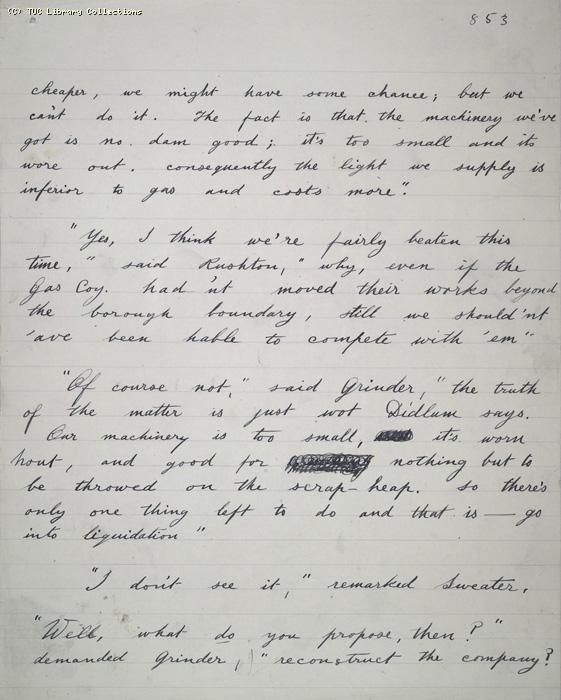 (C) TUC Library Collections
853
cheaper, we might have some chance; but we
can't do it. The fact is that the machinery we've
got is no dam good; it's too small and its
wore out. consequently the light we supply is
inferior to gas and costs more".
"Yes, I think we're fairly beaten this
time," said Rushton, "why, even if the
Gas Coy. had'nt moved their works beyond
the borough boundary, still we should'nt
'ave been hable to compete with 'em"
"Of course not," said Grinder, "the truth
of the matter is just wot Didlum says.
Our machinery is too small, it's worn
hout, and good for nothing but to
be throwed on the scrap-heap. so there's
only one thing left to do and that is — go
into liquidation"
"I don't see it," remarked Sweater.
"Well, what do you propose, then?"
demanded Grinder, "reconstruct the company?